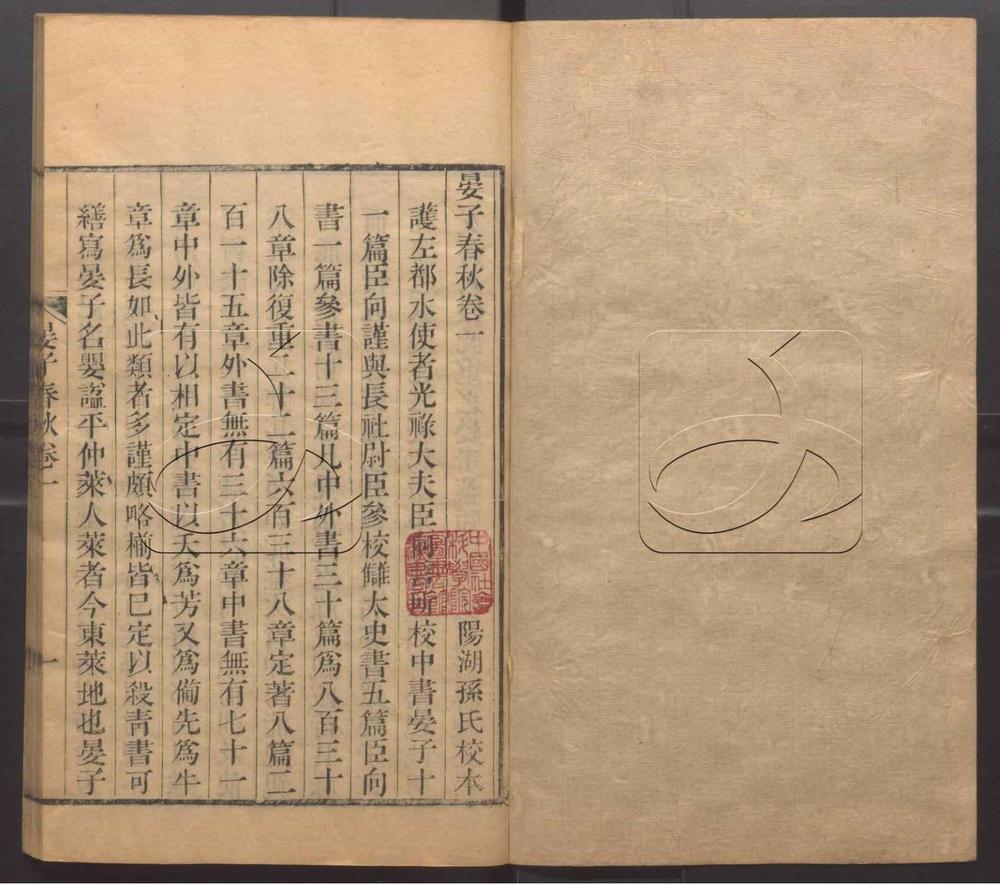 晏子春秋卷一 陽湖孫氏校本
護左都水使者光祿大夫臣向言所校中書晏子十
一篇臣向謹與長社尉臣參校讎太史書五篇臣向
書一篇參書十三篇凡中外書三十篇爲八百三十
八章除復重二十二篇六百三十八章定著八篇二
百一十五章外書無有三十六章中書無有七十一
章中外皆有以相定中書以夭爲芳又爲備先爲牛
章爲長如此類者多謹頗略椾皆已定以殺靑書可
繕寫晏子名嬰謚平仲萊人萊者今東萊地也晏子
晏子春秋卷一 一
中國社會科學院